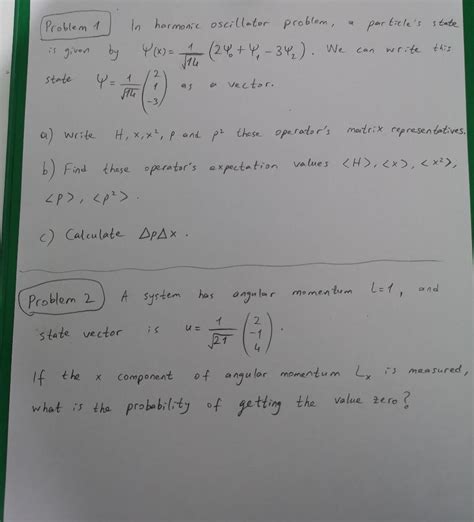 Problem 1 In harmonic oscillator problem, a particle's state
is given by Ψ(x) = 1/√14 (2Ψ₀ + Ψ₁ - 3Ψ₂). We can write this
state Ψ = 1/√14 (2 1 -3) as a vector.
a) Write H, x, x², p and p² these operator's matrix representatives.
b) Find these operator's expectation values <H>, <x>, <x²>,
<p>, <p²>.
c) Calculate ΔpΔx.
Problem 2 A system has angular momentum L=1, and
state vector is u = 1/√21 (2 -1 4).
If the x component of angular momentum Lₓ is measured,
what is the probability of getting the value zero?